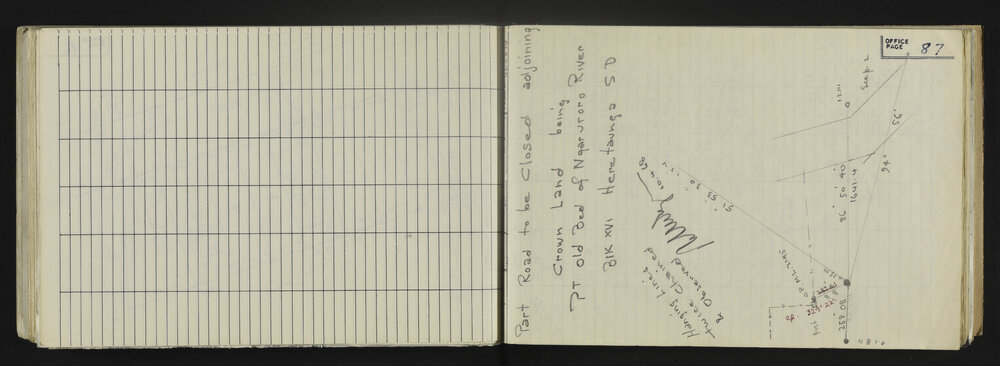 OFFICE
PAGE 87
Part Road to be Closed adjoining
Crown Land being
PT Old Bed of Ngaruroro River
Blk XVI Heretaunga S.D
Hanging Lines
& Observed
twice chained
51 53 30
See p. 2
56'
94°
86 50 40
1641.4
259.08